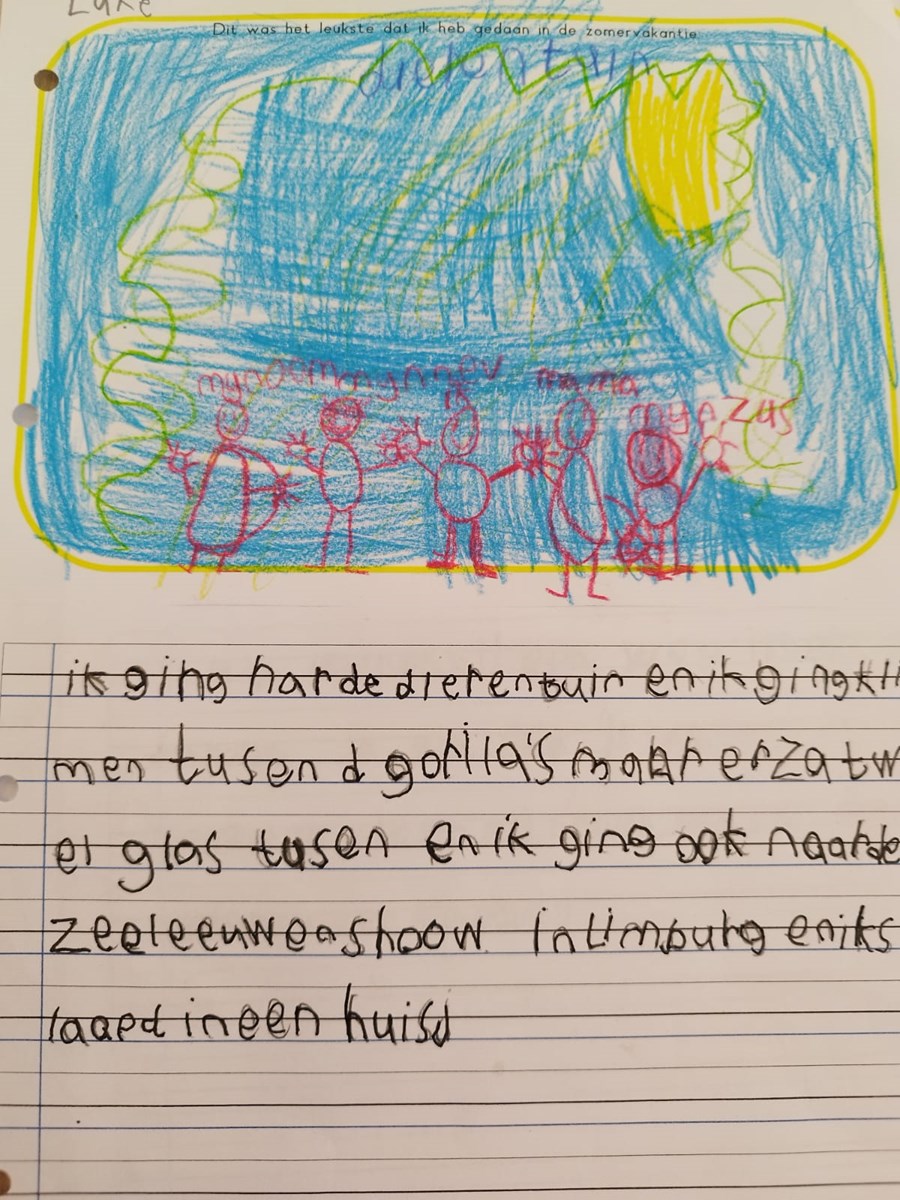 Luke
Dit was het leukste dat ik heb gedaan in de zomervakantie
dieren tuin
mynoom mynnev mama
mynzus
ik ging harde dierentuin en ik ging kli
men tusen d gorilla's maar er zat w
el glas tusen en ik ging ook naarde
zeeleeuwenshoow in limburg en iks
laaped in een huisd